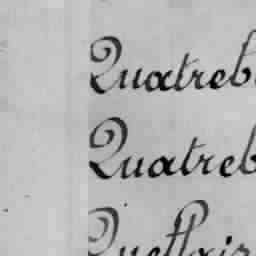 Quatreb
Quatreb
Quettair